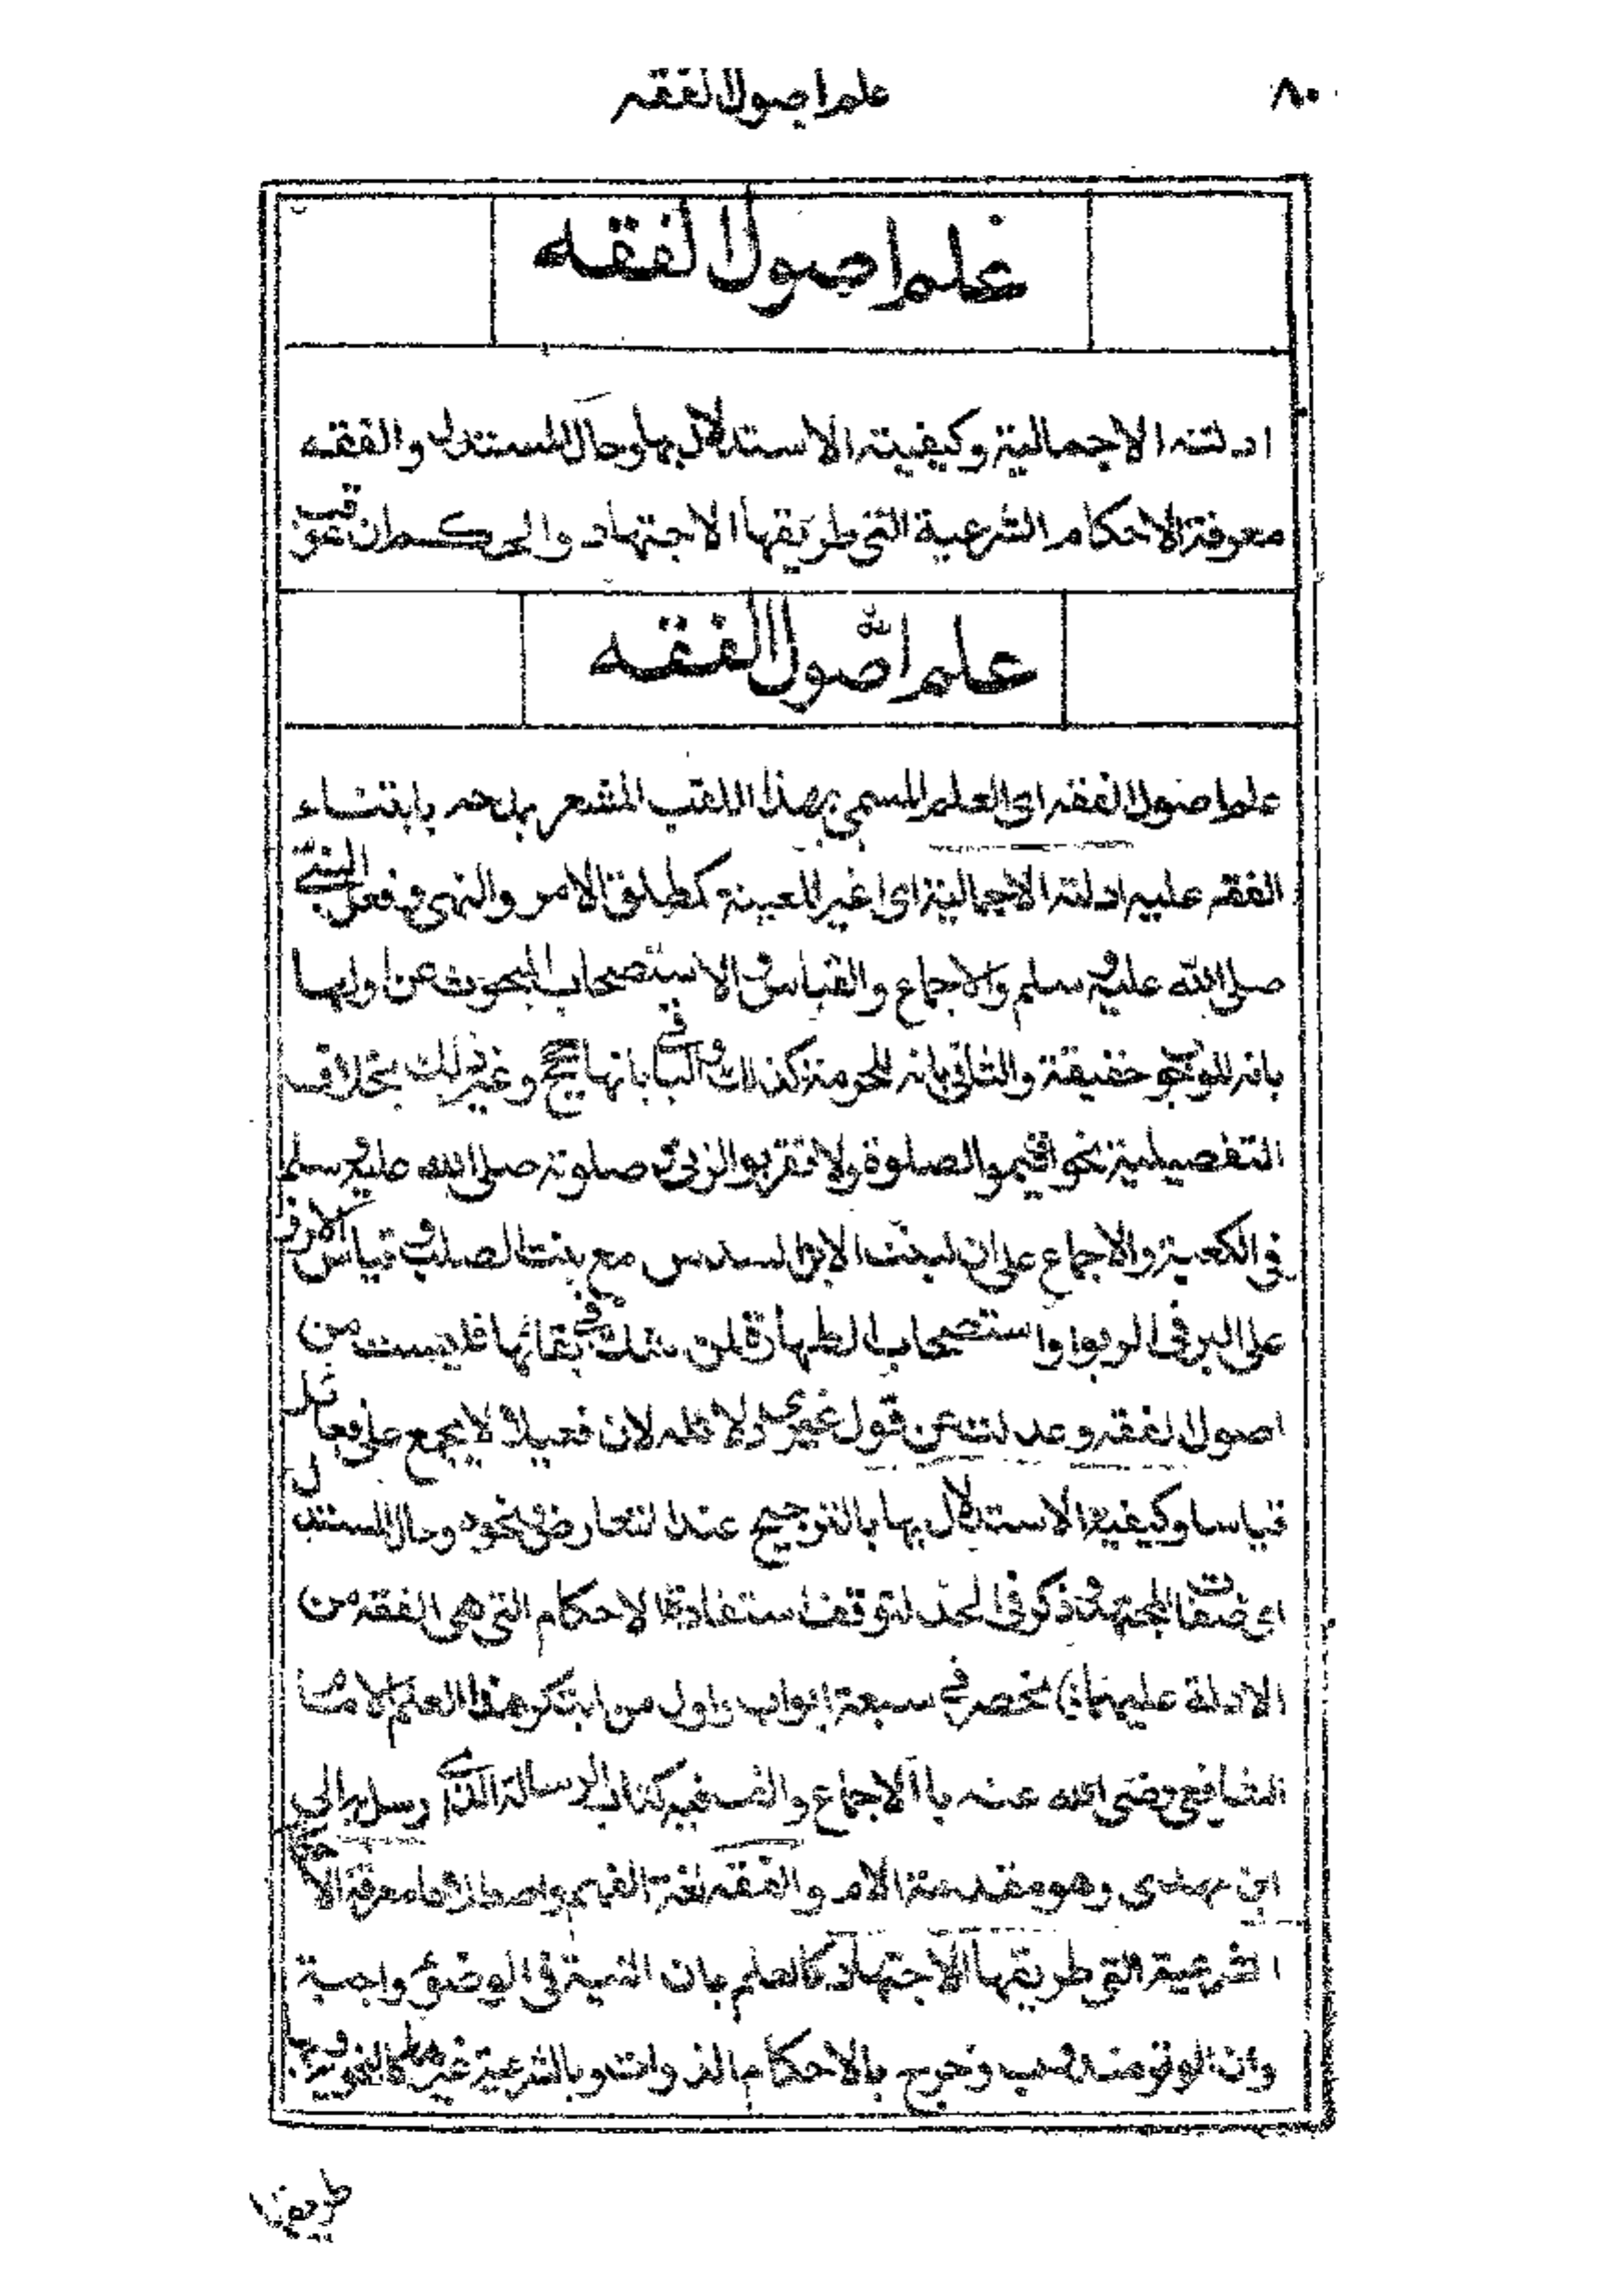 علم اصول الفقه
٨٠
علم اصول الفقه
ادلته الاجمالية وكيفية الاستدلال بها وحال المستدل والفقه
معرفة الاحكام الشرعية التي طريقها الاجتهاد والحكم ان عوقب
علم اصول الفقه
علم اصول الفقه اى العلم المسمى بهذا اللقب المشعر بمدحه بابتناء
الفقه عليه ادلته الاجمالية اى غير المعينة كمطلق الامر والنهى وفعل النبي
صلى الله عليه وسلم والاجماع والقياس والاستصحاب المبحوث عن اولها
بانه للوجوب حقيقة والثاني بانه للحرمة كذلك والباقي بانها حجج وغير ذلك بخلاف
التفصيلية نحو اقيموا الصلوة ولا تقربوا الزنى وصلوته صلى الله عليه وسلم
في الكعبة والاجماع على ان لبنت الابن السدس مع بنت الصلب وقياس الارز
على البر في الربوا واستصحاب الطهارة لمن شك في بقائها فليست من
اصول الفقه وعدلت عن قول غيرى دلائله لان فعيلا لا يجمع على فعائل
قياسا وكيفية الاستدلال بها بالترجيح عند التعارض ونحوه وحال المستدل
اى صفات المجتهد وذكر في الحد لتوقف استفادة الاحكام التي هي الفقه من
الادلة عليها وينحصر في سبعة ابواب واول من ابتكر هذا العلم الامام
الشافعي رضى الله عنه بالاجماع والف فيه كتاب الرسالة الذى ارسل به الى
ابن مهدى وهو مقدمة الام والفقه لغة الفهم واصطلاحا معرفة الاحكام
الشرعية التي طريقها الاجتهاد كالعلم بان النية في الوضوء واجبة
وان الوتر مندوب وخرج بالاحكام الذوات وبالشرعية غيرها كالنحوية وبما
طريقها